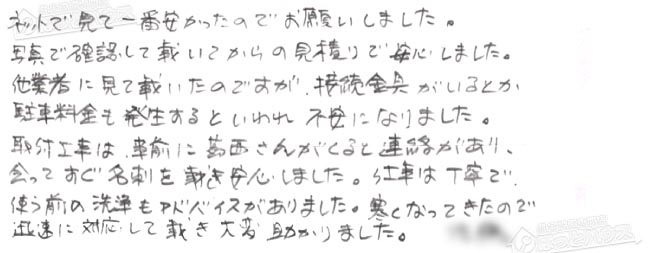 ネットで見て一番安かったのでお願いしました。
写真で確認して載いてからの見積りで安心しました。
他業者に見て載いたのですが、接続金具がいるとか
駐車料金も発生するといわれ 不安になりました。
取付工事は、事前に葛西さんがくると連絡があり、
会ってすぐ名刺を載き安心しました。仕事は丁寧で、
使う前の洗浄もアドバイスがありました。寒くなってきたので
迅速に対応して載き大変助かりました。